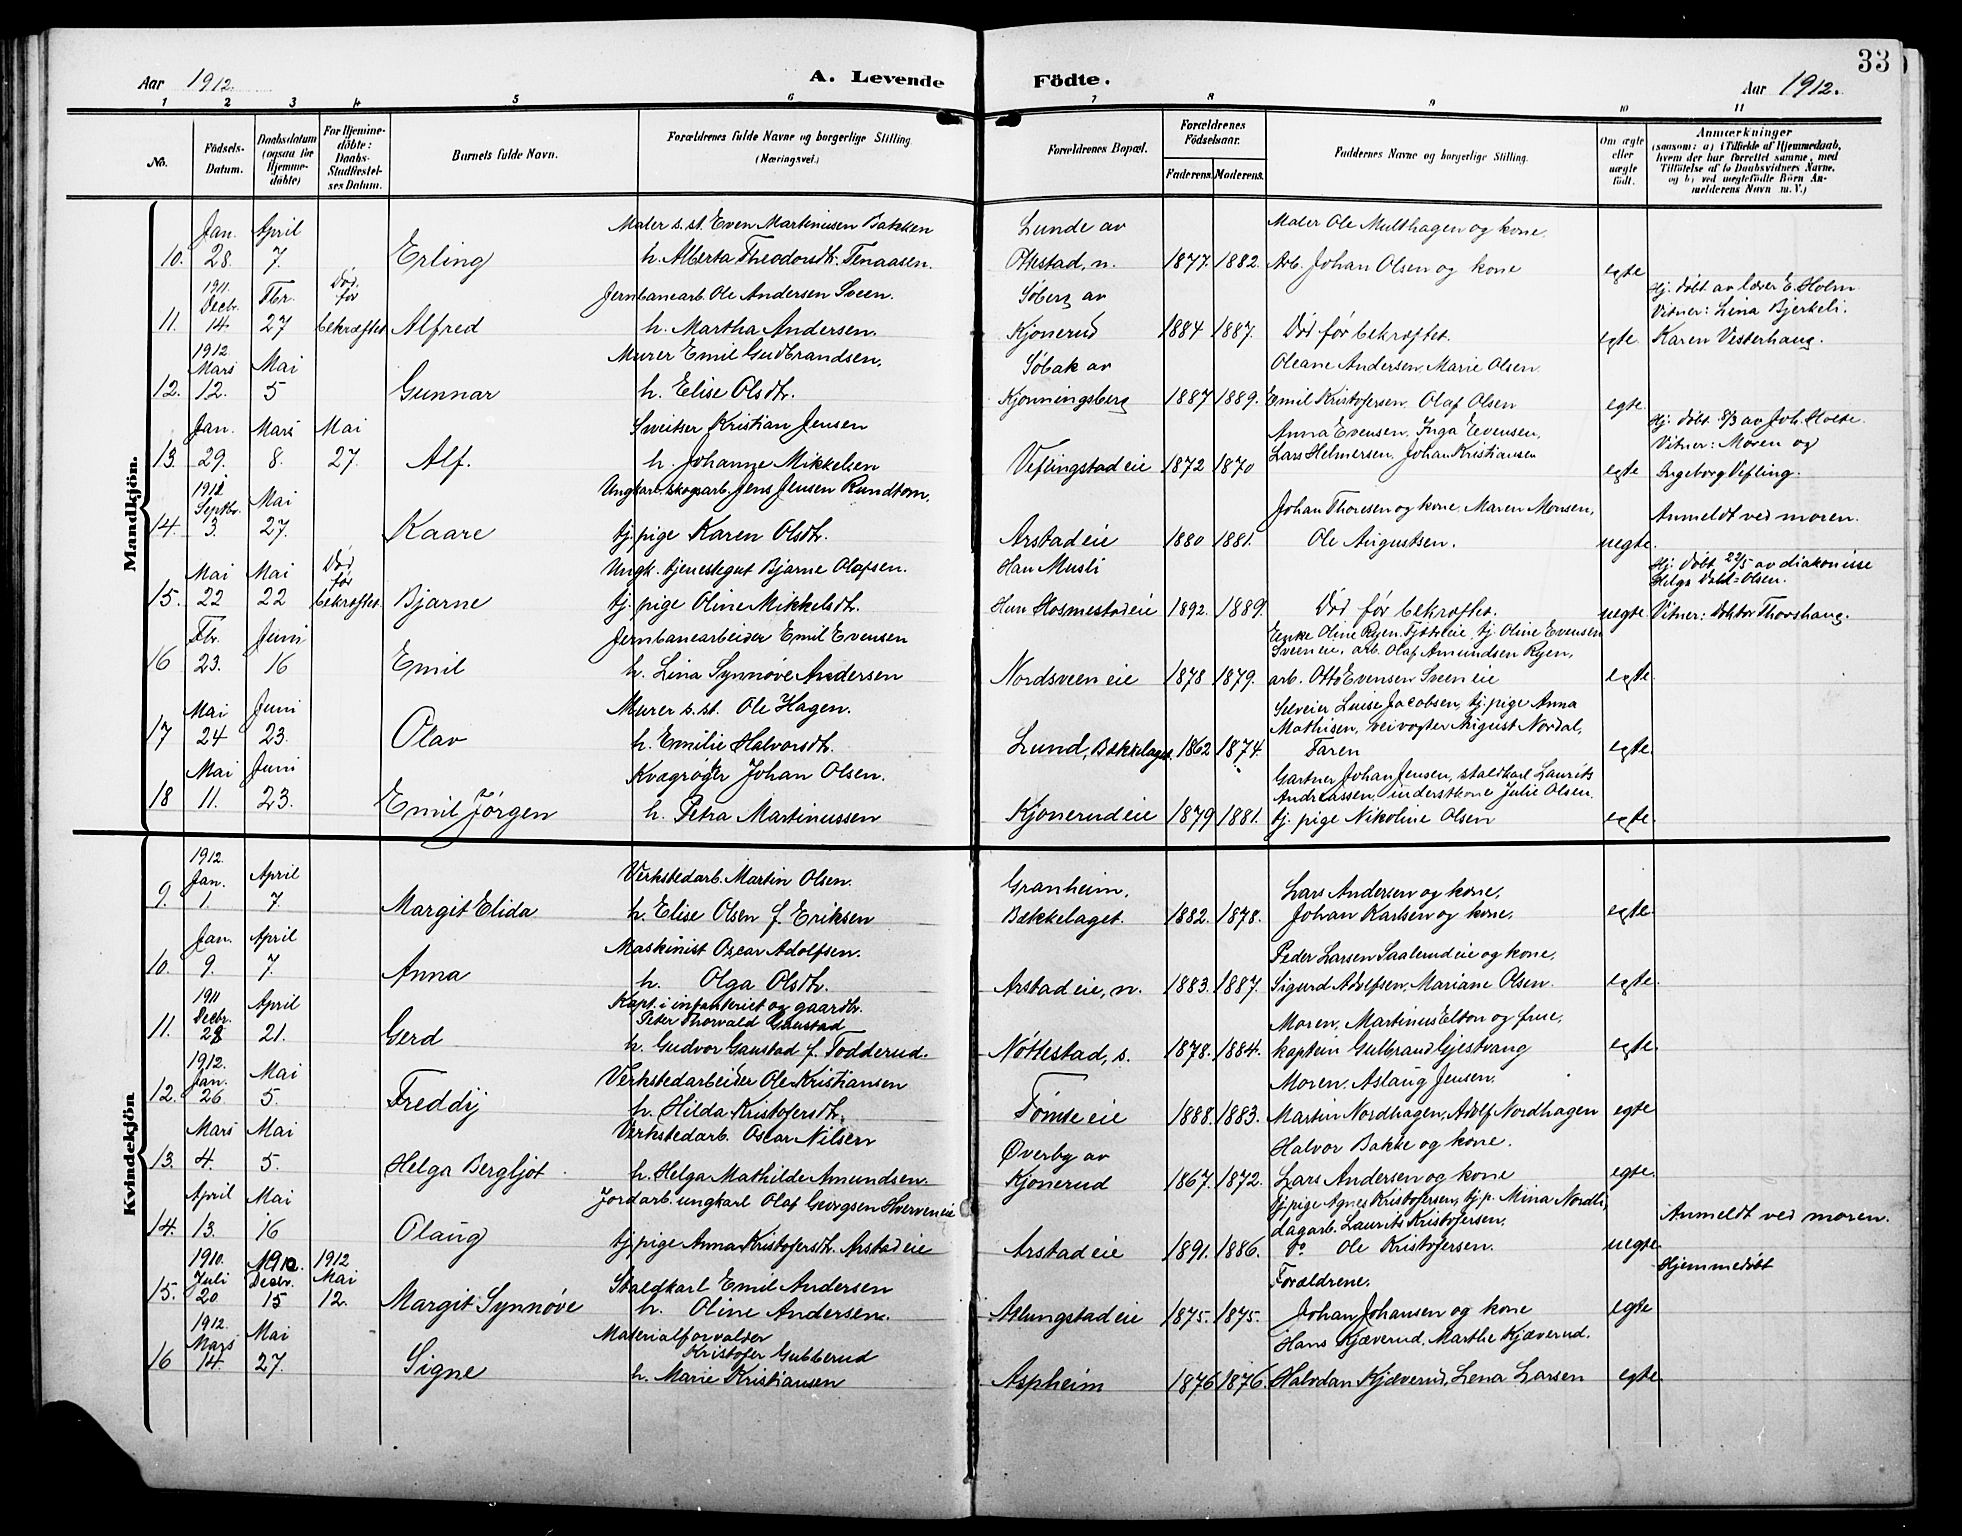 33
Aar 1912. A. Levende Födte. Aar 1912.
1 2 3 4 5 6 7 8 9 10 11
No.
Födsels-Datum.
Daabsdatum (ogsaa for Hjemme-döbte)
For Hjemme-döbte: Daabs-Stadfæstel-ses Datum.
Barnets fulde Navn.
Forældrenes fulde Navne og borgerlige Stilling. (Næringsvei.)
Forældrenes Bopæl.
Forældrenes Födselsaar.
Faderens. Moderens.
Faddernes Navne og borgerlige Stilling.
Om ægte eller uægte født.
Anmærkninger
(saasom: a) i Tilfælde af Hjemmedaab, hvem der har forrettet samme, med Tilföielse af to Daabsvidners Navne, og b) ved uægtefödte Börn An-melderens Navn m. V.)
Mandkjön.
Jan. April Maler s. st. Even Martiniusen Bakken Lunde av Maler Ole Multhagen og kone.
10. 28. 7. Erling h. Alberta Theodorsdtr. Tenaasen. Ottestad, n. 1877. 1882. Arb. Johan Olsen og kone egte
1911. Decbr. Fbr. Död før Jernbanearb. Ole Andersen Sveen. Søberg av Hj. døbt av lærer E. Holm
Vitner: Lina Bjerkeli.
11. 14. 27 bekræftet Alfred h. Martha Andersen. Kjonerud 1884 1887. Død før bekræftet. egte. Karen Vesterhaug.
1912 Mars Mai Murer Emil Gudbrandsen, Søbak av Oleane Andersen, Marie Olsen
12. 12. 5 Gunnar h. Elise Olsdtr. Kjonningsberg 1887 1889. Emil Kristofersen, Olaf Olsen egte.
Jan. Mars Mai Sveitser Kristian Jensen Anna Evensen, Inga Evensen, Hj. døbt 8/3 av Joh. Holte.
Vitner: Moren og
13. 29. 8. 27. Alf. h. Johanne Mikkelsen Veflingstad eie 1872 1870 Lars Helmersen, Johan Kristiansen egte Ingeborg Vefling.
1911 Septbr. Mai Ungkarl skogsarb. Jens Jensen Rundtom. Johan Thoresen og kone, Maren Monsen, Anmeldt ved moren.
14. 3. 27. Kaare tj. pige Karen Olsdtr. Arstad eie 1880 1881. Ole Augustsen. uegte.
Mai Mai Død før Ungk. tjenestegut Bjarne Olafsen. Han Musli Hj. døbt 22/5 av diakonisse
Helga Dahl-Olsen.
15. 22 22 bekræftet. Bjarne tj. pige Oline Mikkelsdtr. Hun Hosmestad eie 1892. 1889. Død før bekræftet. uegte Vitner: Doktor Thorshaug.
Fbr. Juni Jernbanearbeider Emil Evensen Enke Oline Ryen, Tjøtel eie, tj. Oline Evensen
Sveen eie, arb. Olaf Amundsen Ryen,
16 23. 16 Emil h. Lina Synnøve Andersen Nordsveen eie 1878 1879. arb. Otto Evensen Sveen eie egte
Mai Juni Murer s. st. Ole Hagen. Selveier Luise Jacobsen, tj. pige Anna
Mathisen, veivogter August Nordal,
17 24 23. Olav h. Emilie Halvorsdtr. Lund, Bækkelaget. 1862 1874. Faren egte
Mai Juni Kvægrøgter Johan Olsen. Gartner Johan Jensen, staldkarl Laurits
Andreassen, inderstkone Julie Olsen.
18 11. 23. Emil Jørgen h. Petra Martinussen Kjonerud eie 1879 1881. tj. pige Nikoline Olsen egte.
Kvindekjön
1912. Jan. April Verkstedarb. Martin Olsen. Granheim, Lars Andersen og kone,
9. 1. 7 Margit Elida h. Elise Olsen f. Eriksen Bækkelaget. 1882. 1878. Johan Karlsen og kone. egte.
Jan. April Maskinist Oscar Adolfsen. Peder Larsen Saalerud eie og kone,
10. 9. 7. Anna h. Olga Olsdtr. Arstad eie, n. 1883. 1887. Sigurd Adolfsen, Mariane Olsen. egte.
1911 Decbr. April Kapt. i infanteriet og gaardbr.
Peter Thorvald Gaustad Moren, Martinus Elton og frue,
11. 28 21. Gerd h. Gudvor Gaustad f. Todderud. Nøttestad, s. 1878. 1884. kaptein Gulbrand Gjestvang egte.
1912. Jan. Mai Verkstedarbeider Ole Kristiansen Moren, Aslaug Jensen,
12. 26 5. Freddy h. Hilda Kristofersdtr. Tømte eie 1888. 1883. Martin Nordhagen, Adolf Nordhagen egte
Mars Mai Verkstedarb. Oscar Nilsen Øverby av Halvor Bakke og kone.
13. 4. 5. Helga Bergljot h. Helga Mathilde Amundsen. Kjonerud 1867. 1872. Lars Andersen og kone egte.
April Mai Jordarb. ungkarl Olaf Georgsen Hverven eie Tj. pige Agnes Kristofersen, tj. p. Mina Nordli,
dagarb. Laurits Kristofersen, Anmeldt ved moren.
14. 13. 16 Olaug tj. pige Anna Kristofersdtr. Arstad eie Arstad eie 1891. 1886. do Ole Kristofersen. uegte
1910. Juli 1910. Decbr. 1912 Mai Staldkarl Emil Andersen Forældrene, Hjemmedøbt
15. 20 15 12. Margit Synnøve h. Oline Andersen. Atlungstad eie 1875. 1875. Johan Johansen og kone egte
1912. Mars Mai Materialforvalder
Kristofer Gubberud Hans Kjæverud, Marthe Kjæverud.
16 14. 27. Signe h. Marie Kristiansen Aspheim 1876 1876. Halvdan Kjæverud, Lena Larsen egte